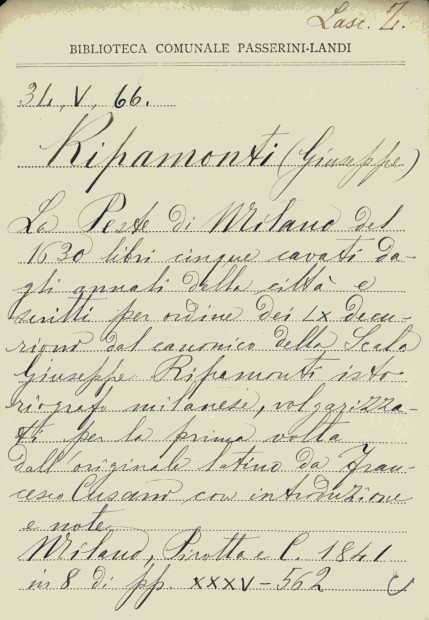 Lasc. Z.
BIBLIOTECA COMUNALE PASSERINI-LANDI
34, V, 66.
Ripamonti (Giuseppe)
La Peste di Milano del
1630 libri cinque cavati da-
gli annali della città e
scritti per ordine dei LX decu-
rioni dal canonico della Scala
Giuseppe Ripamonti isto
riografo milanese, volgarizza-
ti per la prima volta
dall'originale latino da Fran-
cesco Cusani, con introduzione
e note
Milano, Pirotta e C. 1841
in 8 di pp. XXXV-562